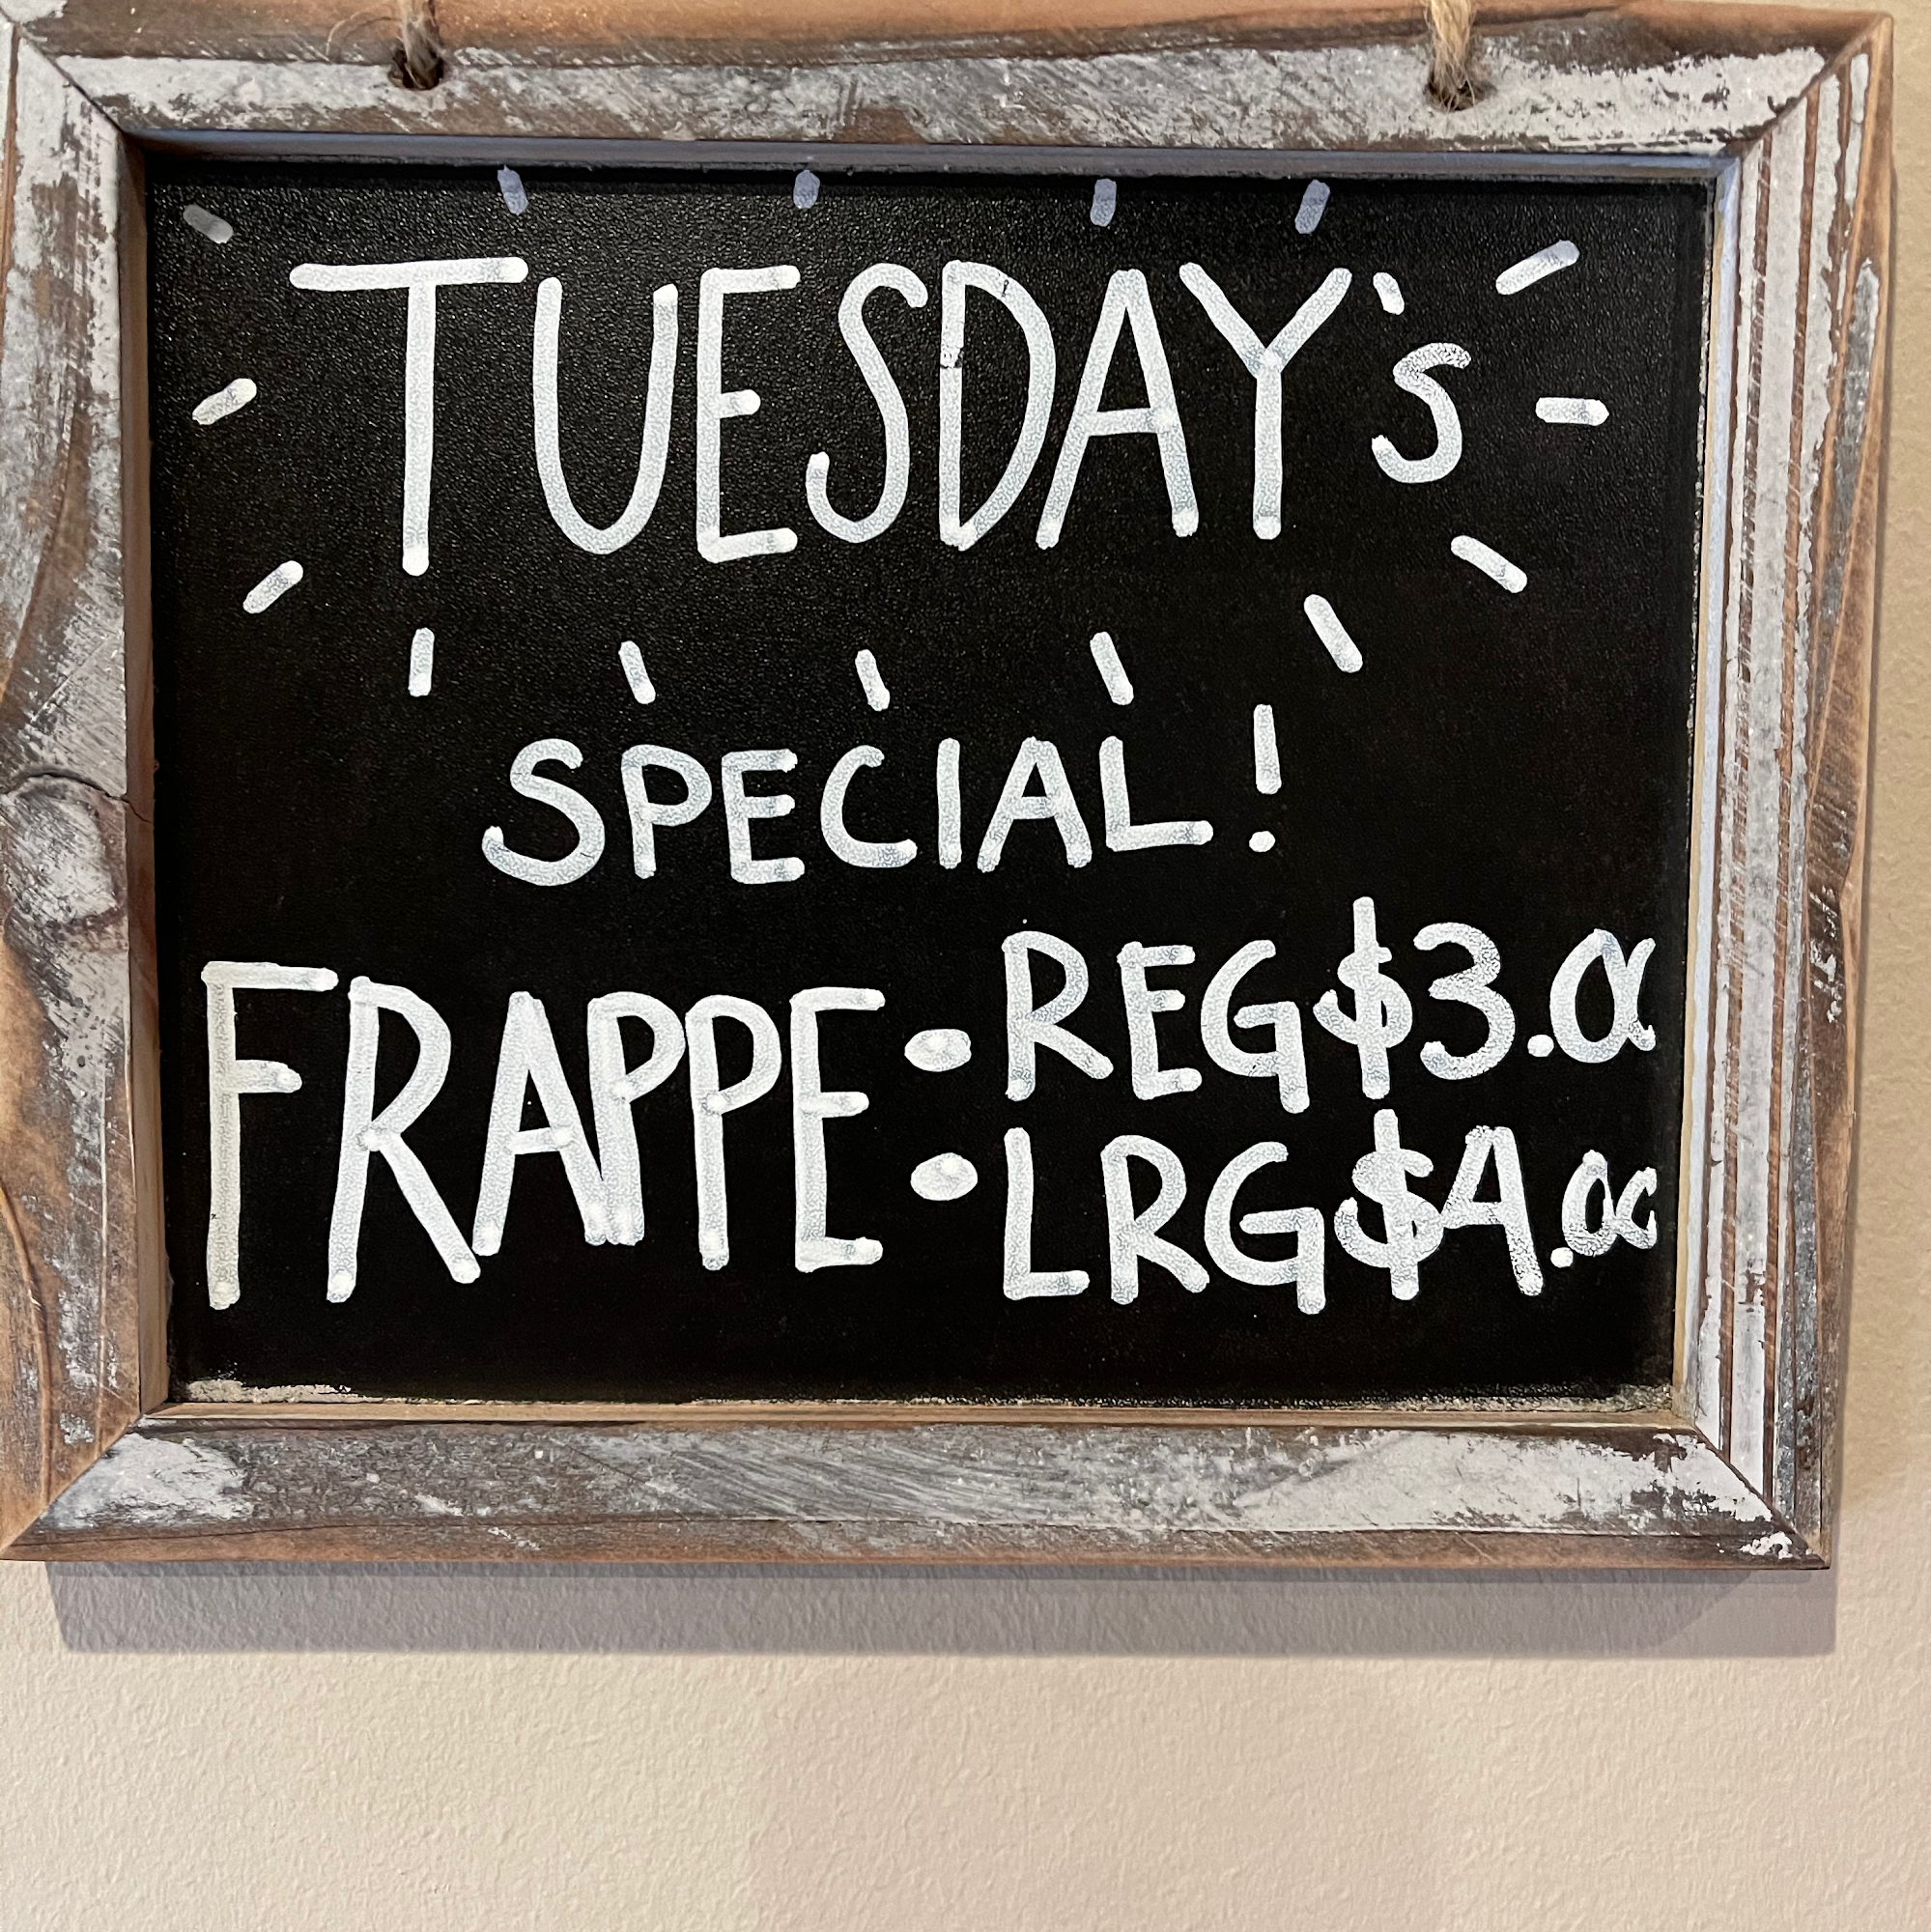 TUESDAY's
SPECIAL!
FRAPPE • REG $3.00
• LRG $4.00